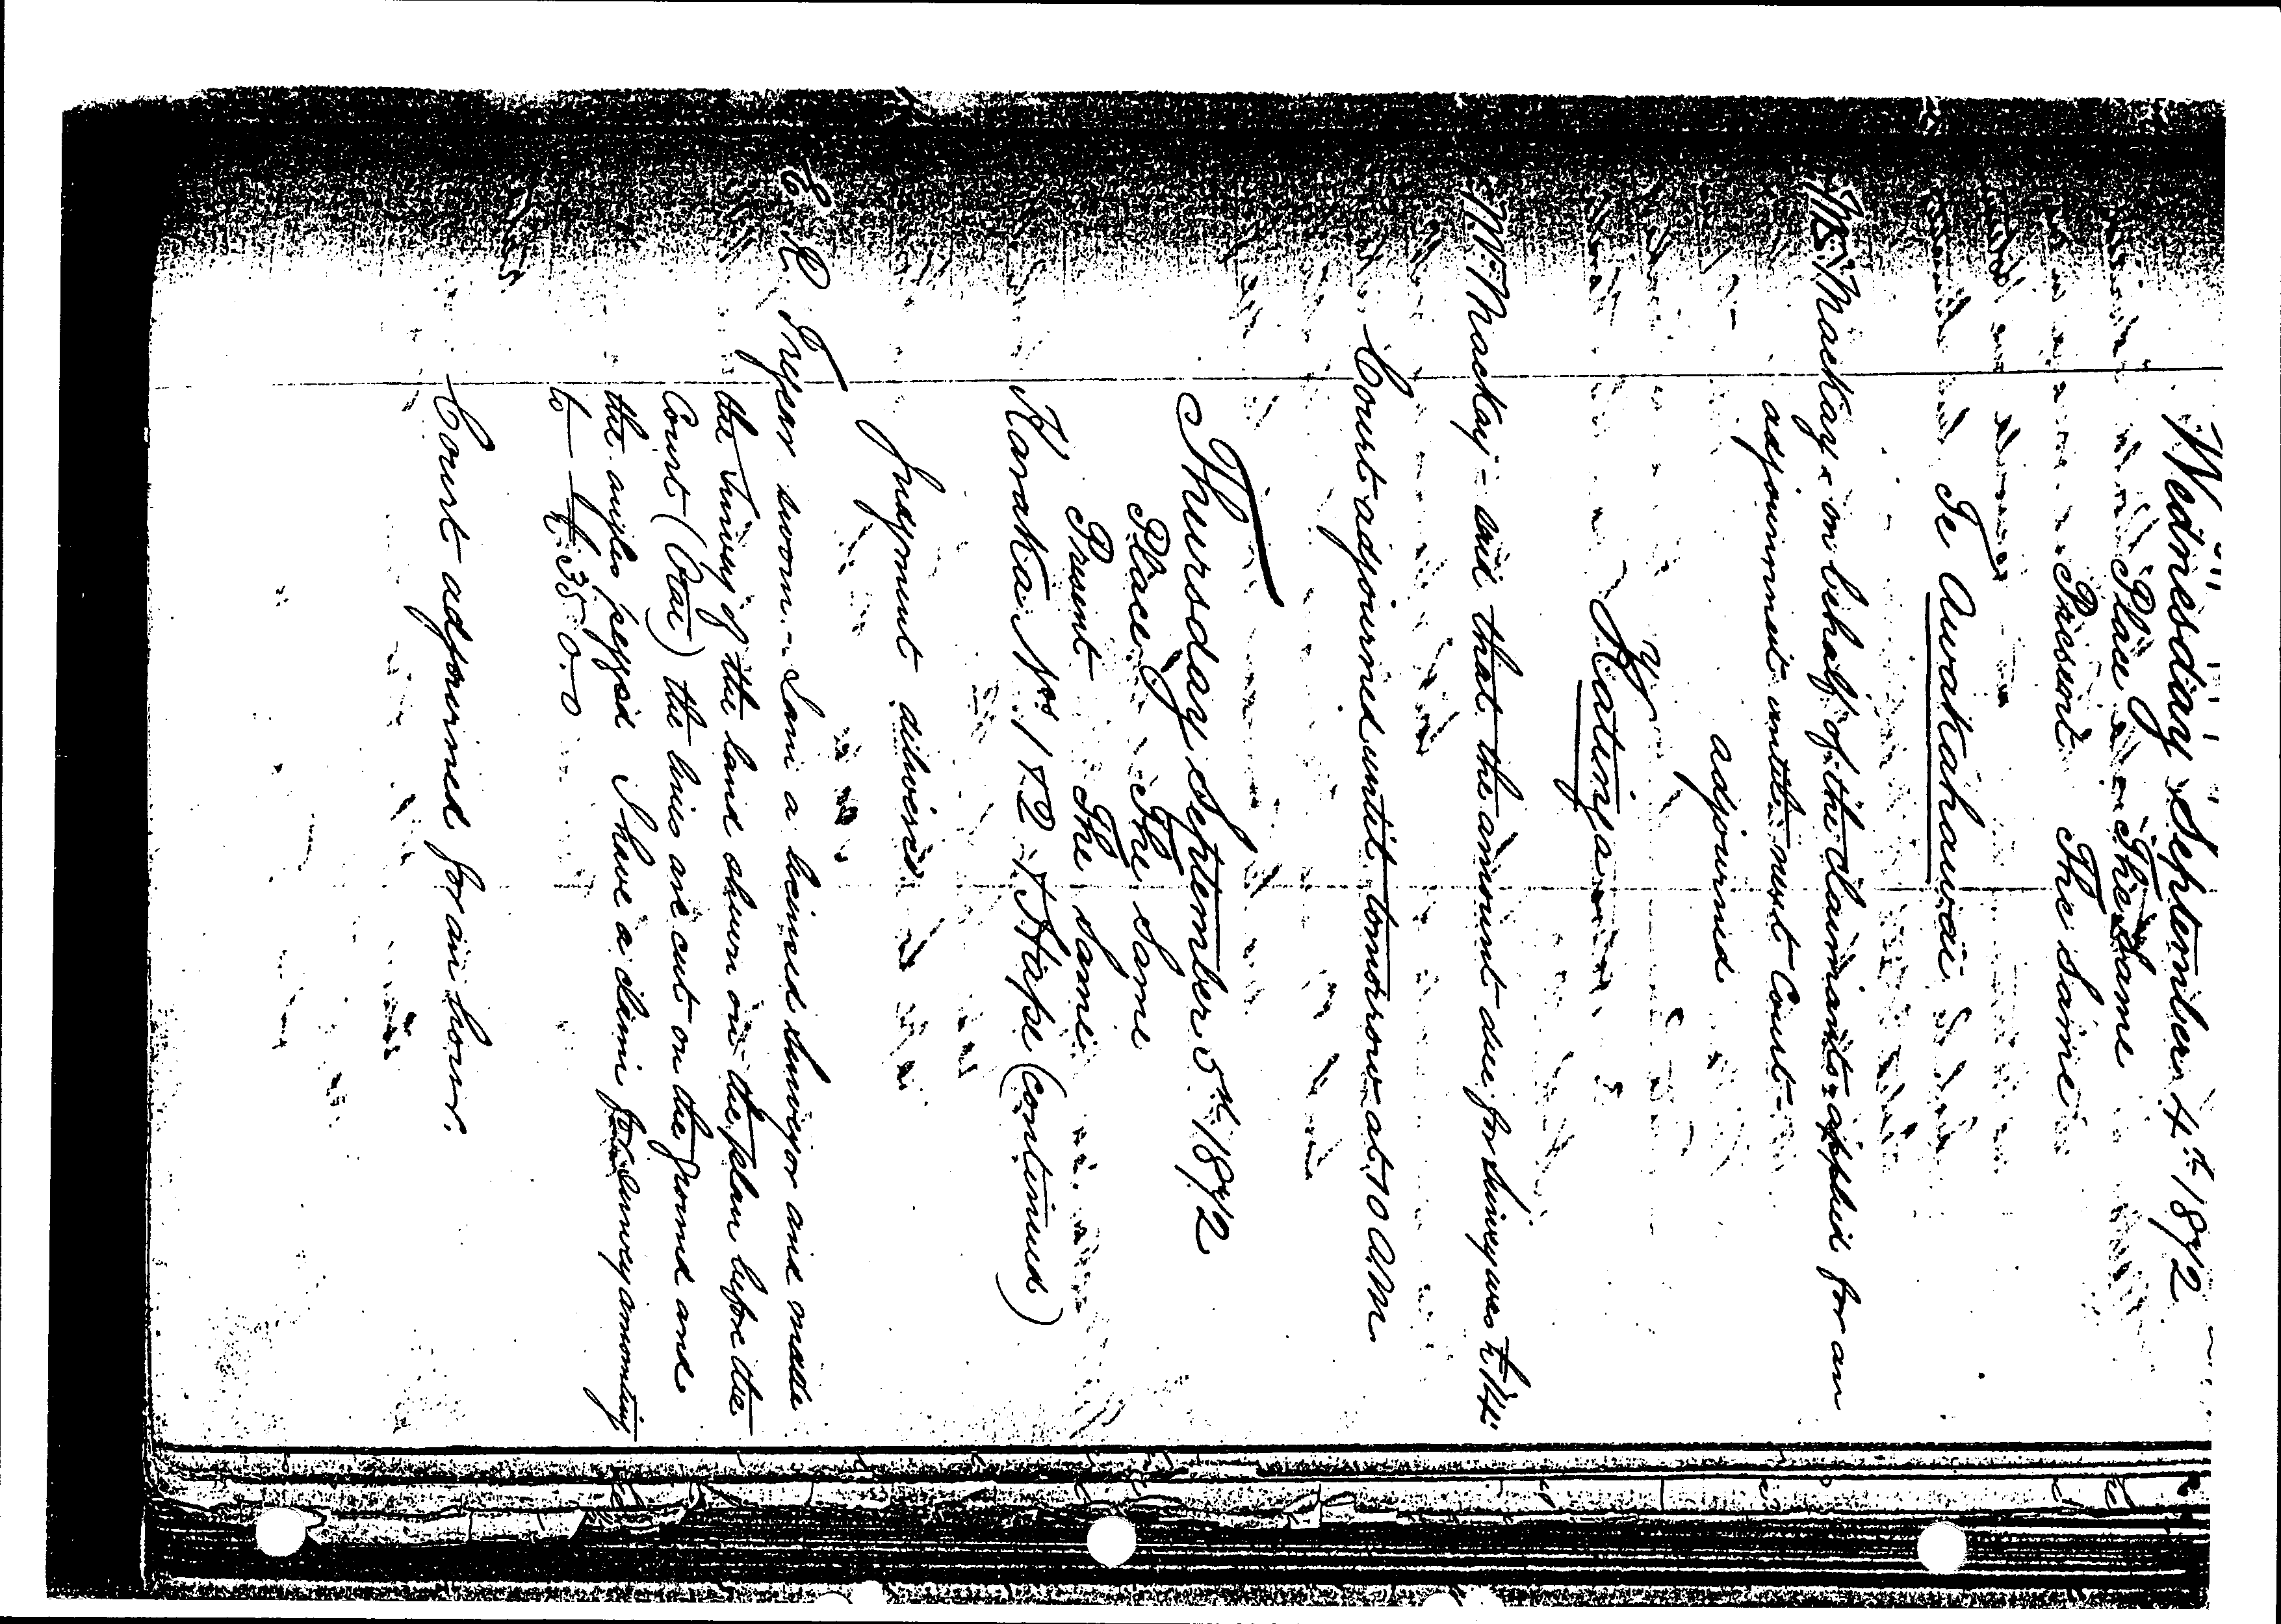 Wednesday September 4th 1872
Place The Same
Present The Same
Te Awakahawai
Mr Mackay - on behalf of the claimants - applied for an
adjournment until next Court -
adjourned
Katinga
Mr Mackay - said that the amount due for survey was
Court adjourned until tomorrow at 10 A.M.
Thursday September 5th 1872
Place The Same
Present The Same
Karaka Nos 1 & 2 & Hape (Continued)
Judgment delivered
E. R. Tregear sworn - I am a licensed Surveyor and made
the Survey of the land shewn on the plan before the
Court the lines are cut on the ground and
the angles pegged I have a claim for Survey amounting
to £35.0.0
Court adjourned for an hour.